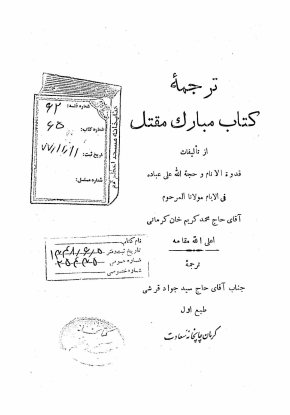 ترجمهٔ
کتاب مبارك مقتل
از تألیفات
قدوة الانام و حجة الله علی عباده
فی الایام مولانا المرحوم
آقای حاج محمد کریم خان کرمانی
اعلی الله مقامه
ترجمهٔ
جناب آقای حاج سید جواد قرشی
طبع اول
کرمان چاپخانه سعادت
شماره قفسه: ۶۲
شماره کتاب: ۶۵
تاریخ ثبت: ۷۷/۱۱/۱۱
شماره مسلسل:
کتابخانه مسجد اعظم قم
نام کتاب
تاریخ ثبت دفتر
شماره عمومی
شماره خصوصی